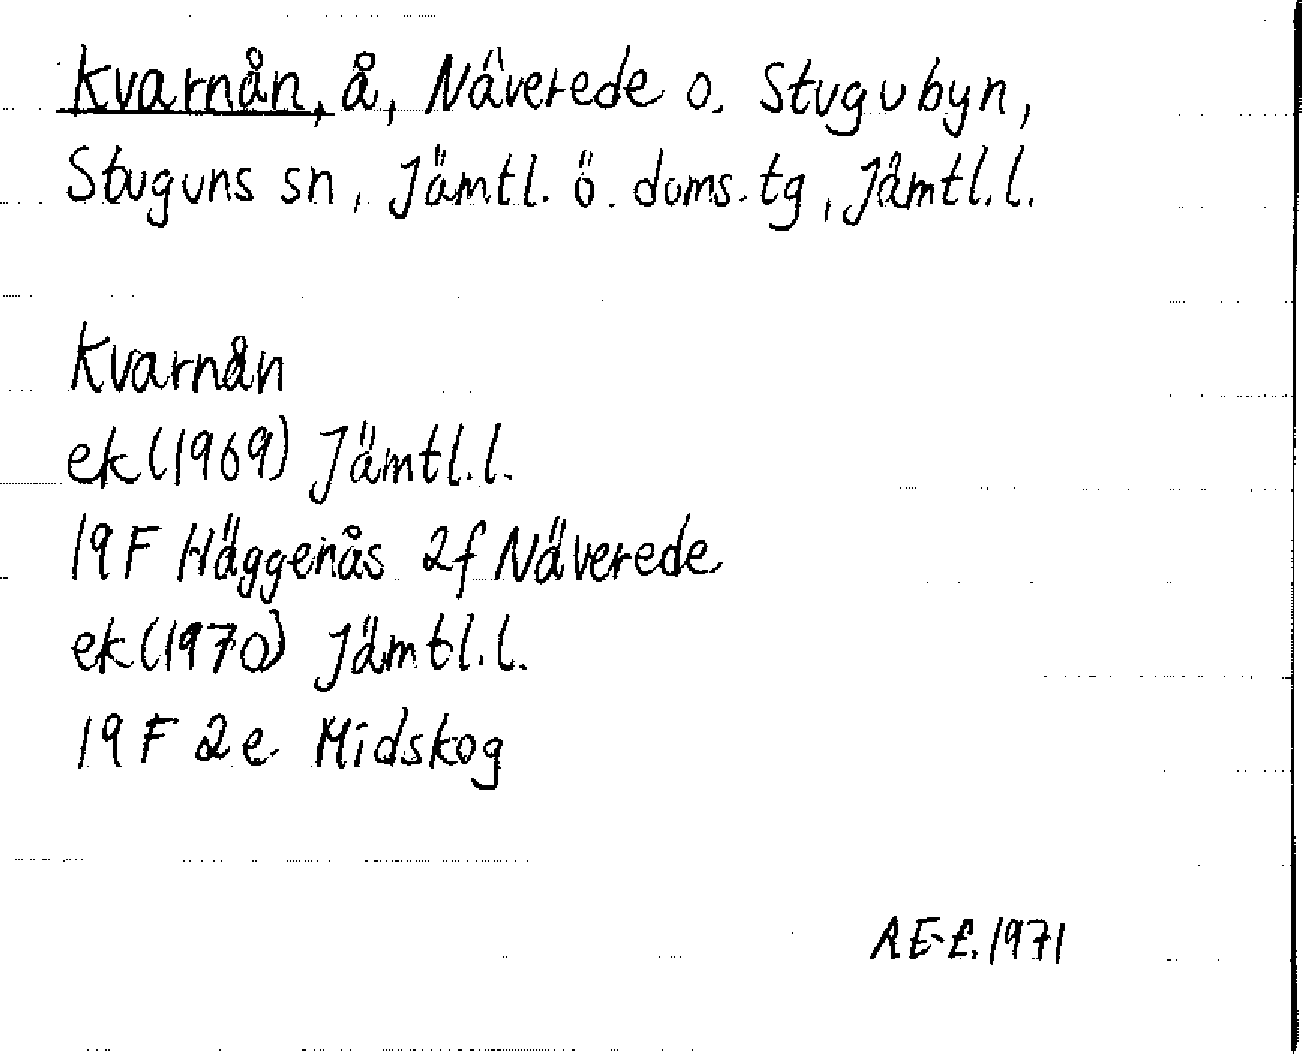 Kvarnån, å, Näverede o. Stugubyn,
Stuguns sn, Jämtl. ö. doms. tg, Jämtl. l.
Kvarnån
ek (1969) Jämtl. l.
19 F Häggenås 2f Näverede
ek (1970) Jämtl. l.
19 F 2e Midskog
A E-L. 1971